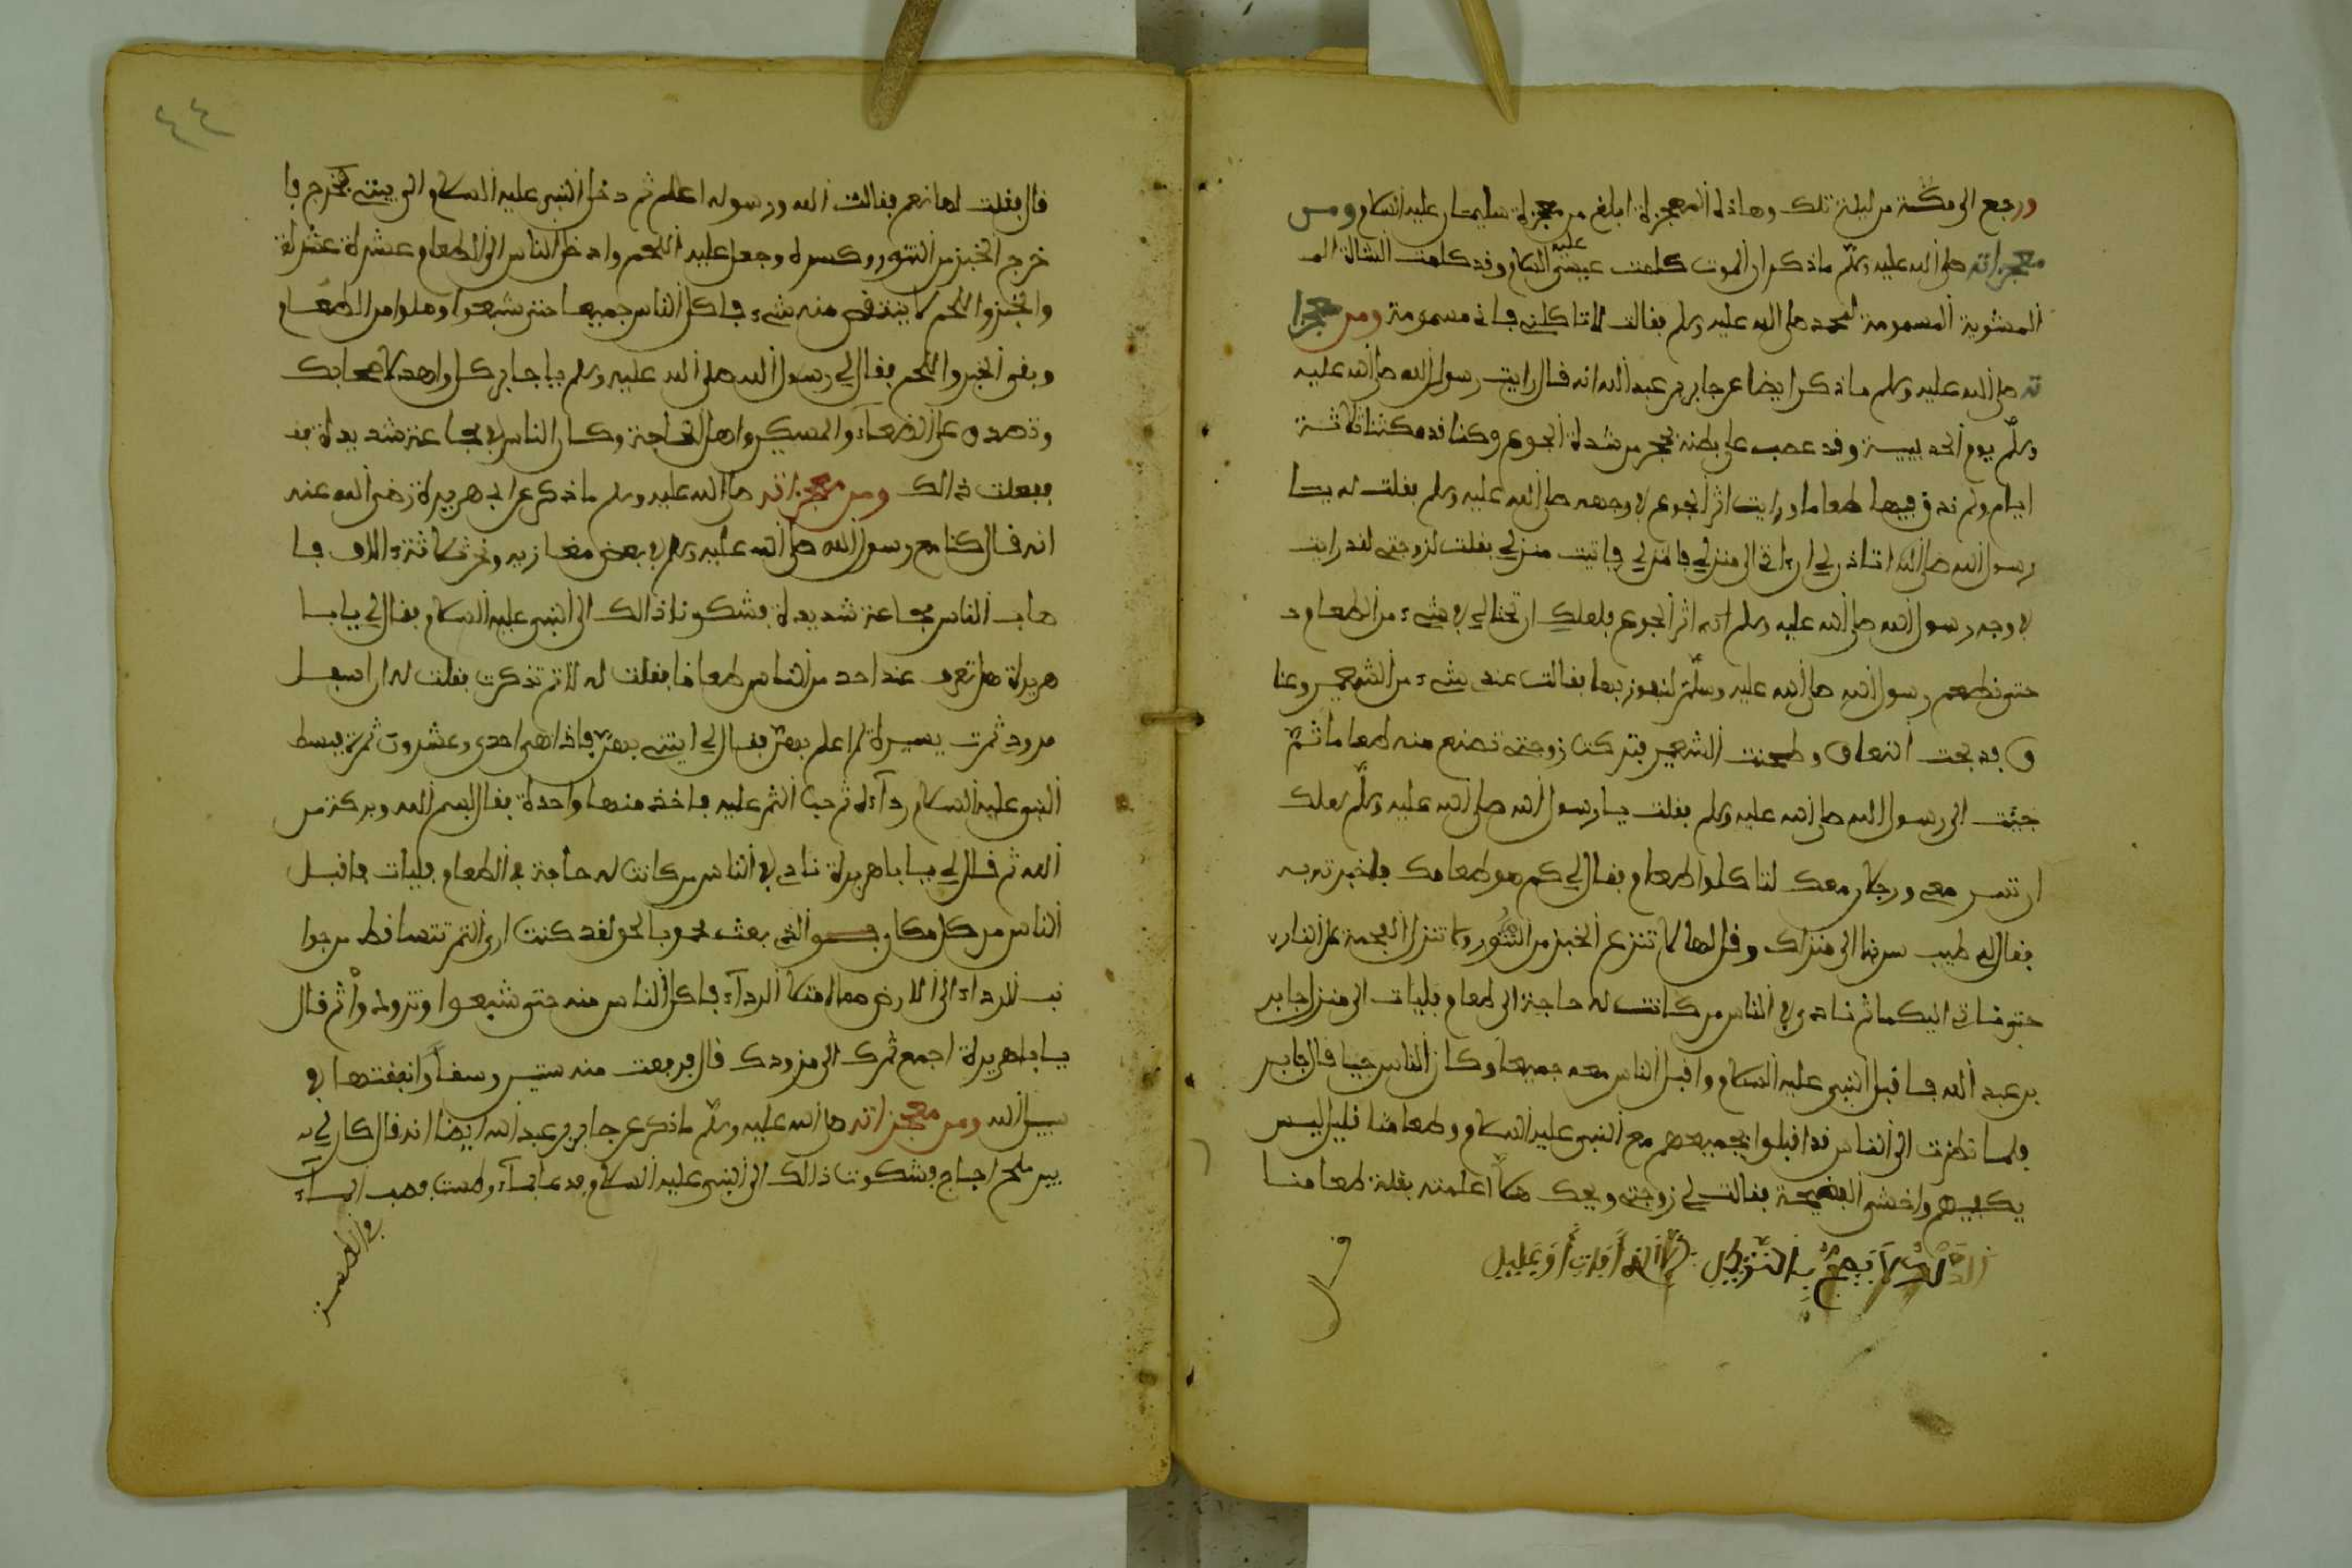 ورجع الى مكة من ليلة تلك وهاذه المعجزة ابلغ من معجزة سليمان عليه السلام ومن
معجزاته صلى الله عليه وسلم ماذكر ان الموت كلمت عيسى عليه السلام وقد كلمت الشاة المـ
المشوية المسمومة لمحمد صلى الله عليه وسلم فقالت لا تاكلني فانى مسمومة ومن معجزا
ته صلى الله عليه وسلم ماذكر ايضا عن جابر بن عبد الله انه قال رايت رسول الله صلى الله عليه
وسلم يوم الحديبية وقد عصب على بطنه بحجر من شدة الجوع وكنا قد مكثنا ثلاثة
ايام ولم نذق فيها طعاما ورايت اثر الجوع في وجهه صلى الله عليه وسلم فقلت له يا
رسول الله صلى الله اتاذن لي ان ءاتى الى منزلي فاتيت منزلي فقلت لزوجتى لقد رايت
في وجه رسول الله صلى الله عليه وسلم اثر الجوع فلعلك ان تحتالي في شيء من الطعام
حتى نطعم رسول الله صلى الله عليه وسلم لنفوز بها فقالت عندى شيء من الشعير وعنا
ق فذبحت العناق وطحنت الشعير فتركت زوجتى تصنع منه طعاما ثم
جيت الى رسول الله صلى الله عليه وسلم فقلت يا رسول الله صلى الله عليه وسلم لعلك
ان تسر معى ورجلان معك لتاكلوا طعام فقال لي كم هو طعامك فاخبرته به
فقال لي طيب سر بنا الى منزلك وقل لها لا تنزع الخبز من التنور ولا تنزل البرمة على النار
حتى ناتى اليكما ثم نادى في الناس من كانت له حاجة الى طعام فليات الى منزل جابر
بن عبد الله فاقبل النبي عليه السلام واقبل الناس معه جميعا وكان الناس جيا قال جابر
فلما نظرت الى الناس قد اقبلوا بجميعهم مع النبي عليه السلام وطعامنا قليل ليس
يكفيهم واخشى الفضيحة فقالت لي زوجتى ويحك هلا اعلمته بقلة طعامنا
قال
قال فقلت لها نعم فقالت الله ورسوله اعلم ثم دخل النبي عليه السلام الى بيتى فخرج فا
خرج الخبز من التنور وكسره وجعل عليه اللحم وادخل الناس الى الطعام عشرة عشرة
والخبز واللحم لا ينتقص منه شيء فاكل الناس جميعا حتى شبعوا وملوا من الطعام
وبقى الخبز واللحم فقال لي رسول الله صلى الله عليه وسلم يا جابر كل واهد لاصحابك
وتصدق على الضعفاء والمسكين واهل الحاجة وكان الناس في مجاعة شديدة
ففعلت ذالك ومن معجزاته صلى الله عليه وسلم ماذكر عن ابي هريرة رضى الله عنه
انه قال كنا مع رسول الله صلى الله عليه وسلم في بعض مغازيه ونحن ثلاثة ءالاف فا
صاب الناس مجاعة شديدة فشكونا ذالك الى النبي عليه السلام فقال لي يا با
هريرة هل تعرف عند احد من الناس طعاما فقلت له لا ثم تذكرت فقلت له ان اسفل
مزودى تمرت يسيرة لم اعلم بعد فقال لي ايتنى به فاذا هى احدى وعشرون تمرة فبسط
النبي عليه السلام رداءه ثم صب التمر عليه فاخذ منها واحدة فقال بسم الله وبركة من
الله ثم قال لي يا با هريرة نادى في الناس من كانت له حاجة في الطعام فليات فاقبل
الناس من كل مكان فو الذى بعث محمد بالحق لقد كنت ارى التمر تتساقط من جوا
نب الرداء الى الارض مما امتلا الرداء فاكل الناس منه حتى شبعوا وتزودوا ثم قال
يا باهريرة اجمع تمرك الى مزودك قال فرفعت منه ستين وسقا وانفقتها في
سبيل الله ومن معجزاته صلى الله عليه وسلم ماذكر عن جابر بن عبد الله ايضا انه قال كان لي
بير ملح اجاج فشكوت ذالك الى النبي عليه السلام فدعا بماء وطست فصب الماء
في الطست
٤٤